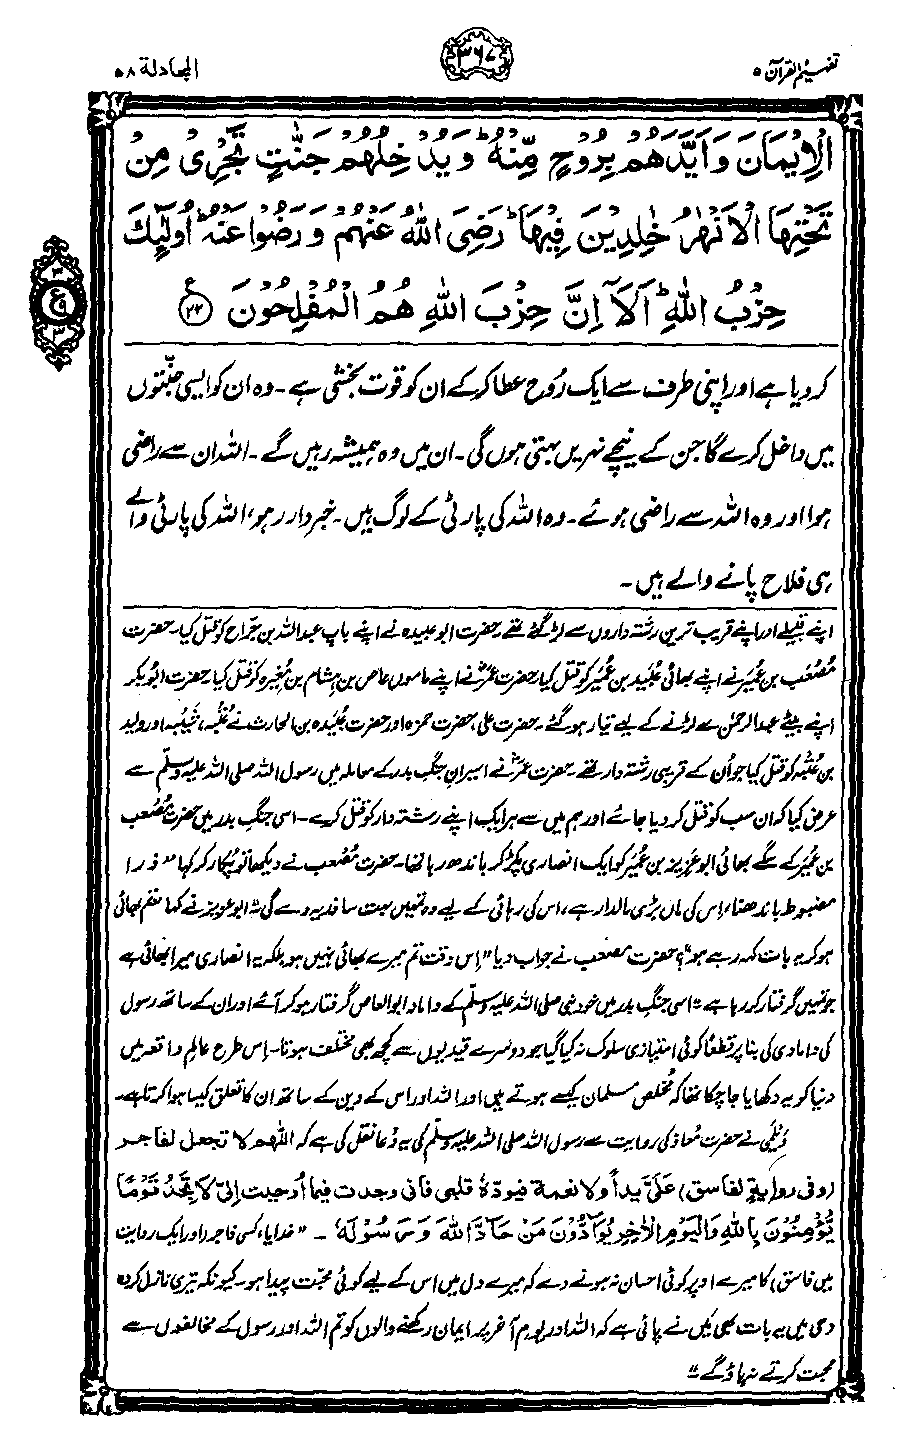 تفہیم القرآن ۵
۳۶۷
المجادلۃ ۵۸
الْاِيْمَانَ وَاَيَّدَهُمْ بِرُوْحٍ مِّنْهُ ؕ وَيُدْخِلُهُمْ جَنّٰتٍ تَجْرِىْ مِنْ
تَحْتِهَا الْاَنْهٰرُ خٰلِدِيْنَ فِيْهَا ؕ رَضِىَ اللّٰهُ عَنْهُمْ وَرَضُوْا عَنْهُ ؕ اُولٰٓئِكَ
حِزْبُ اللّٰهِ ؕ اَلَاۤ اِنَّ حِزْبَ اللّٰهِ هُمُ الْمُفْلِحُوْنَ ﴿۲۲﴾
ع
کر دیا ہے اور اپنی طرف سے ایک رُوح عطا کر کے ان کو قوت بخشی ہے۔ وہ ان کو ایسی جنّتوں
میں داخل کرے گا جن کے نیچے نہریں بہتی ہوں گی۔ ان میں وہ ہمیشہ رہیں گے۔ اللہ ان سے راضی
ہوا اور وہ اللہ سے راضی ہوئے۔ وہ اللہ کی پارٹی کے لوگ ہیں۔ خبردار رہو، اللہ کی پارٹی والے
ہی فلاح پانے والے ہیں۔
اپنے قبیلے اور اپنے قریب ترین رشتہ داروں سے لڑ گئے تھے۔ حضرت ابو عبیدہ نے اپنے باپ عبداللہ بن جراح کو قتل کیا۔ حضرت
مُصْعَب بن عُمَیر نے اپنے بھائی عُبَید بن عُمَیر کو قتل کیا، حضرت عمرؓ نے اپنے ماموں عاص بن ہشام بن مُغِیرہ کو قتل کیا۔ حضرت ابو بکر
اپنے بیٹے عبدالرحمٰن سے لڑنے کے لیے تیار ہو گئے۔ حضرت علی، حضرت حمزہ اور حضرت عُبَیدہ بن الحارث نے عُتبہ، شَیبہ اور ولید
بن عُتْبہ کو قتل کیا جو اُن کے قریبی رشتہ دار تھے۔ حضرت عمرؓ نے اسیرانِ جنگِ بدر کے معاملہ میں رسول اللہ صلی اللہ علیہ وسلم سے
عرض کیا کہ ان سب کو قتل کر دیا جائے اور ہم میں سے ہر ایک اپنے رشتہ دار کو قتل کرے۔ اسی جنگِ بدر میں حضرت مُصْعَب
بن عُمَیر کے سگے بھائی ابو عزیز بن عُمَیر کو ایک انصاری پکڑ کر باندھ رہا تھا۔ حضرت مُصْعَب نے دیکھا تو پکار کر کہا "ذرا
مضبوط باندھنا، اِس کی ماں بڑی مالدار ہے، اس کی رہائی کے لیے وہ تمہیں بہت سا فدیہ دے گی" ابو عزیز نے کہا "تم بھائی
ہو کر یہ بات کہہ رہے ہو؟" حضرت مصعب نے جواب دیا "اِس وقت تم میرے بھائی نہیں ہو بلکہ یہ انصاری میرا بھائی ہے
جو تمہیں گرفتار کر رہا ہے" اسی جنگِ بدر میں خود نبی صلی اللہ علیہ وسلم کے داماد ابو العاص گرفتار ہو کر آئے اور ان کے ساتھ رسول
کی دامادی کی بنا پر قطعاً کوئی امتیازی سلوک نہ کیا گیا جو دوسرے قیدیوں سے کچھ بھی مختلف ہوتا۔ اِس طرح عالمِ واقعہ میں
دنیا کو یہ دکھایا جا چکا تھا کہ مُخلص مسلمان کیسے ہوتے ہیں اور اللہ اور اس کے دین کے ساتھ ان کا تعلق کیسا ہوا کرتا ہے۔
دَیْلَمِی نے حضرت مُعاذ کی روایت سے رسول اللہ صلی اللہ علیہ وسلم کی یہ دُعا نقل کی ہے کہ اللهم لا تجعل لفاجر
(وفی روایةٍ لفاسق) عَلَیَّ یداً ولا نعمة فیودّہٗ قلبی فانی وجدت فیما اُوحیت اِلیّ لَا تَجِدُ قَوْمًا
يُّؤْمِنُوْنَ بِاللّٰهِ وَالْيَوْمِ الْاٰخِرِ يُوَآدُّوْنَ مَنْ حَآدَّ اللّٰهَ وَرَسُوْلَهٗ ۔ "خدایا، کسی فاجر (اور ایک روایت
میں فاسق) کا میرے اوپر کوئی احسان نہ ہونے دے کہ میرے دل میں اس کے لیے کوئی محبّت پیدا ہو۔ کیونکہ تیری نازل کردہ
وحی میں یہ بات بھی مَیں نے پائی ہے کہ اللہ اور یومِ آخر پر ایمان رکھنے والوں کو تم اللہ اور رسول کے مخالفوں سے
محبت کرتے نہ پاؤ گے"